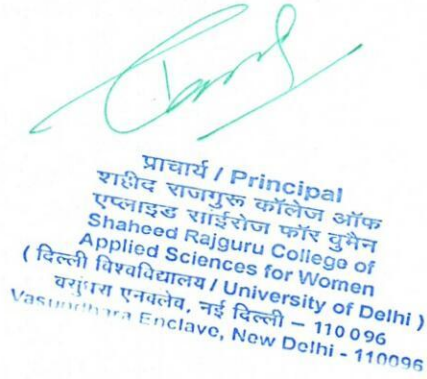 प्राचार्य / Principal
शहीद राजगुरू कॉलेज ऑफ
एप्लाइड साईंरोज फॉर वुमैन
Shaheed Rajguru College of
Applied Sciences for Women
( दिल्ली विश्वविद्यालय / University of Delhi )
वसुंधरा एनक्लेव, नई दिल्ली – 110096
Vasundhara Enclave, New Delhi - 110096